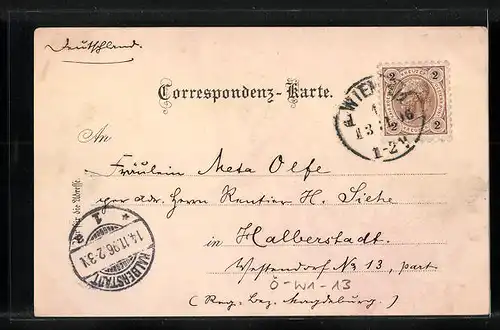 Deutschland.
Correspondenz-Karte.
WIEN
13 11 96
1-2N
2 2
2 2
An
Fräulein Meta Olfe
per adr. Herrn Rentier H. Siehe
in Halberstadt.
Westendorf No 13, part
Ö-W1-13
(Reg. Bez. Magdeburg.)
für die Adresse.
HALBERSTADT
14.11.96.2-3N
* 1